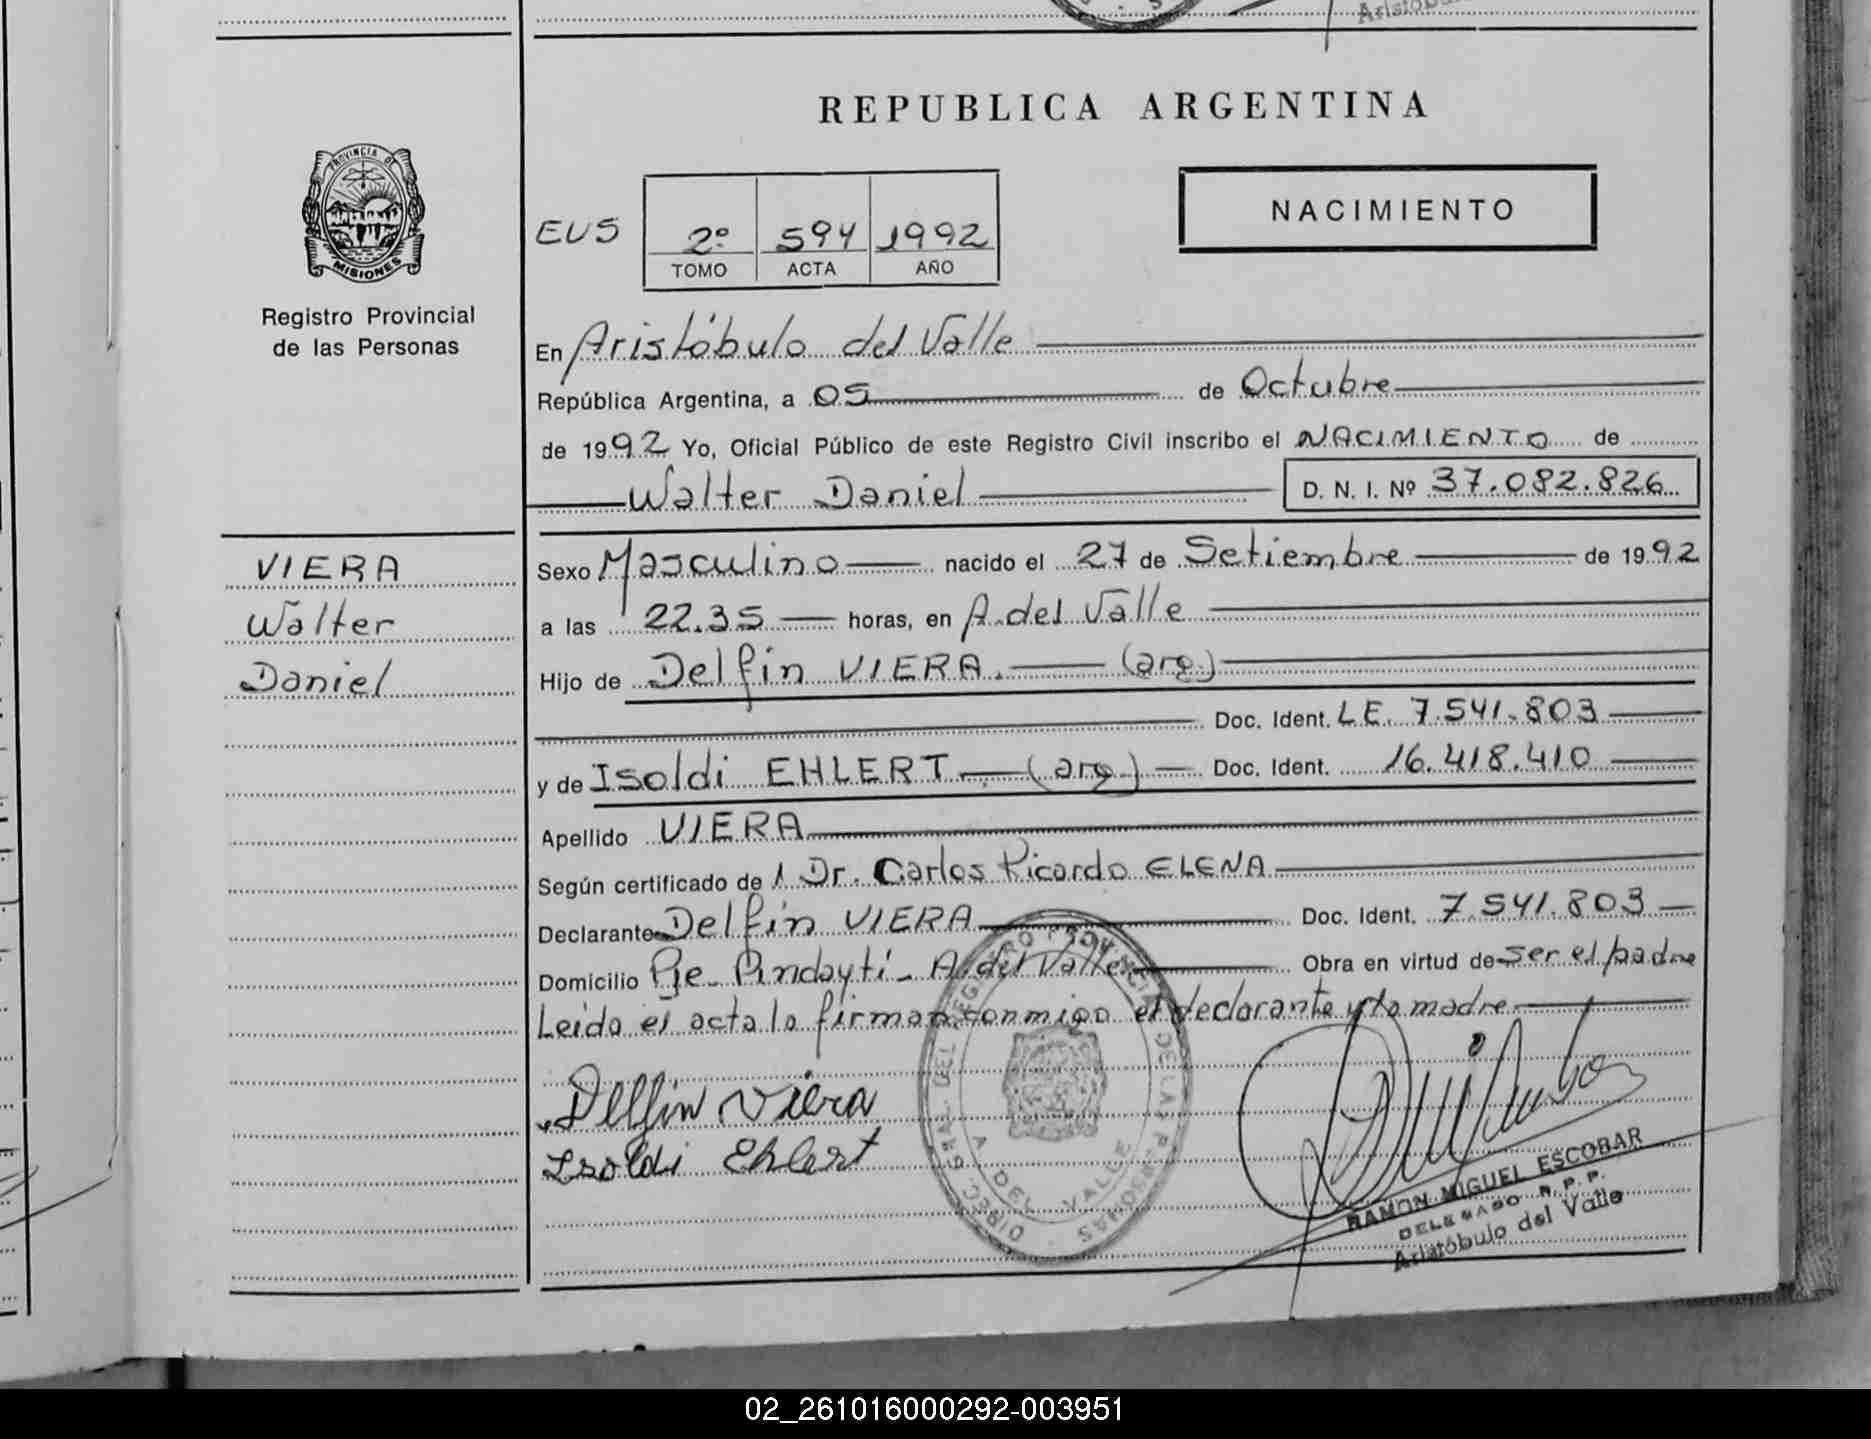 REPUBLICA ARGENTINA
PROVINCIA DE
MISIONES
Registro Provincial
de las Personas
NACIMIENTO
EUS 2º 594 1992
TOMO ACTA AÑO
En Aristóbulo del Valle
República Argentina, a 05 de Octubre
de 1992 Yo, Oficial Público de este Registro Civil inscribo el NACIMIENTO de
Walter Daniel D. N. I. Nº 37.082.826
VIERA
Walter
Daniel
Sexo Masculino nacido el 27 de Setiembre de 1992
a las 22.35 horas, en A. del Valle
Hijo de Delfin VIERA. (arg.)
Doc. Ident. LE. 7.541.803
y de Isoldi EHLERT (arg.) Doc. Ident. 16.418.410
Apellido VIERA
Según certificado de 1 Dr. Carlos Ricardo ELENA
Declarante Delfin VIERA Doc. Ident. 7.541.803
Domicilio Pje. Pindaytí - A. del Valle Obra en virtud de ser el padre
Leída el acta la firman conmigo el declarante y la madre
Delfin Viera
Isoldi Ehlert
DIREC. GRAL. DEL REGISTRO PROVINCIAL DE LAS PERSONAS
A. DEL VALLE
RAMON MIGUEL ESCOBAR
DELEGADO R. P. P.
Aristóbulo del Valle
02_261016000292-003951